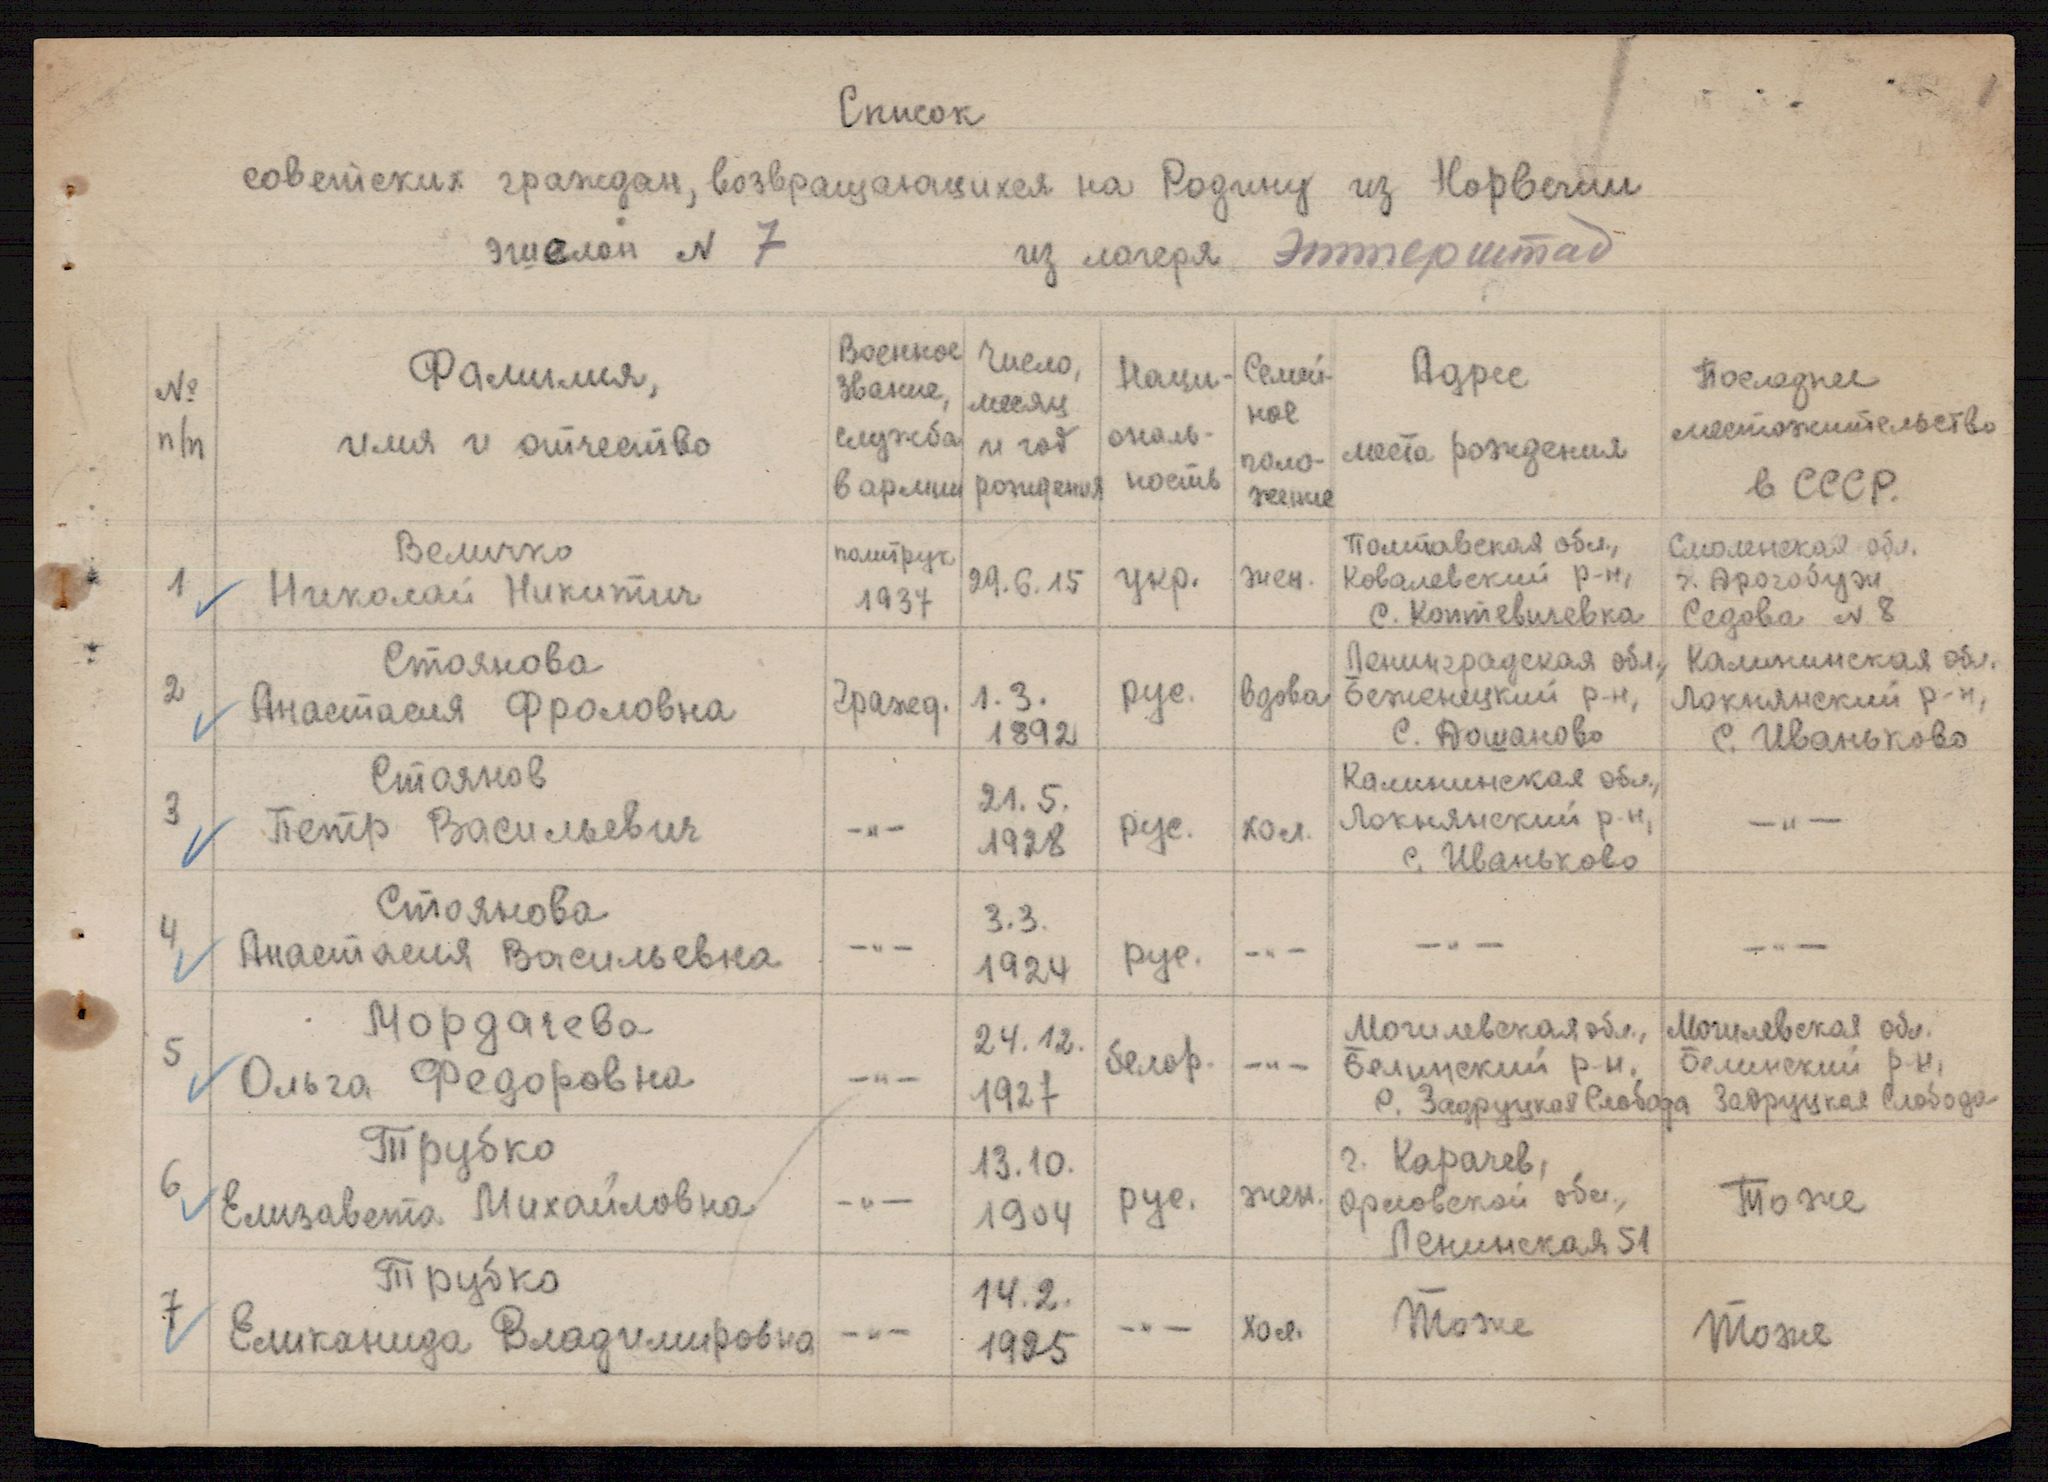 1
Список
советских граждан, возвращающихся на Родину из Норвегии
эшелон N 7 из лагеря Эттерштад
№ п/п
Фамилия, имя и отчество
Военное звание, служба в армии
Число, месяц и год рождения
Наци-ональ-ность
Семей-ное поло-жение
Адрес места рождения
Последнее местожительство в СССР.
1
Величко
Николай Никитич
политрук
1937
29.6.15
укр.
жен.
Полтавская обл.,
Ковалевский р-н,
с. Коптевичевка
Смоленская обл.
г. Дрогобуж
Седова N 8
2
Стоянова
Анастасия Фроловна
гражд.
1.3.
1892
рус.
вдова
Ленинградская обл.,
Беженецкий р-н,
с. Дошаново
Калининская обл.
Локнянский р-н,
с. Иваньково
3
Стоянов
Петр Васильевич
–"–
21.5.
1928
рус.
хол.
Калининская обл.,
Локнянский р-н,
с. Иваньково
–"–
4
Стоянова
Анастасия Васильевна
–"–
3.3.
1924
рус.
–"–
–"–
–"–
5
Мордачева
Ольга Федоровна
–"–
24.12.
1927
белор.
–"–
Могилевская обл.,
Белинский р-н,
с. Задруцкая Слобода
Могилевская обл.
Белинский р-н,
Задруцкая Слобода
6
Трубко
Елизавета Михайловна
–"–
13.10.
1904
рус.
жен.
г. Карачев,
Орловской обл.,
Ленинская 51
Тоже
7
Трубко
Еликанида Владимировна
–"–
14.2.
1925
–"–
хол.
Тоже
Тоже